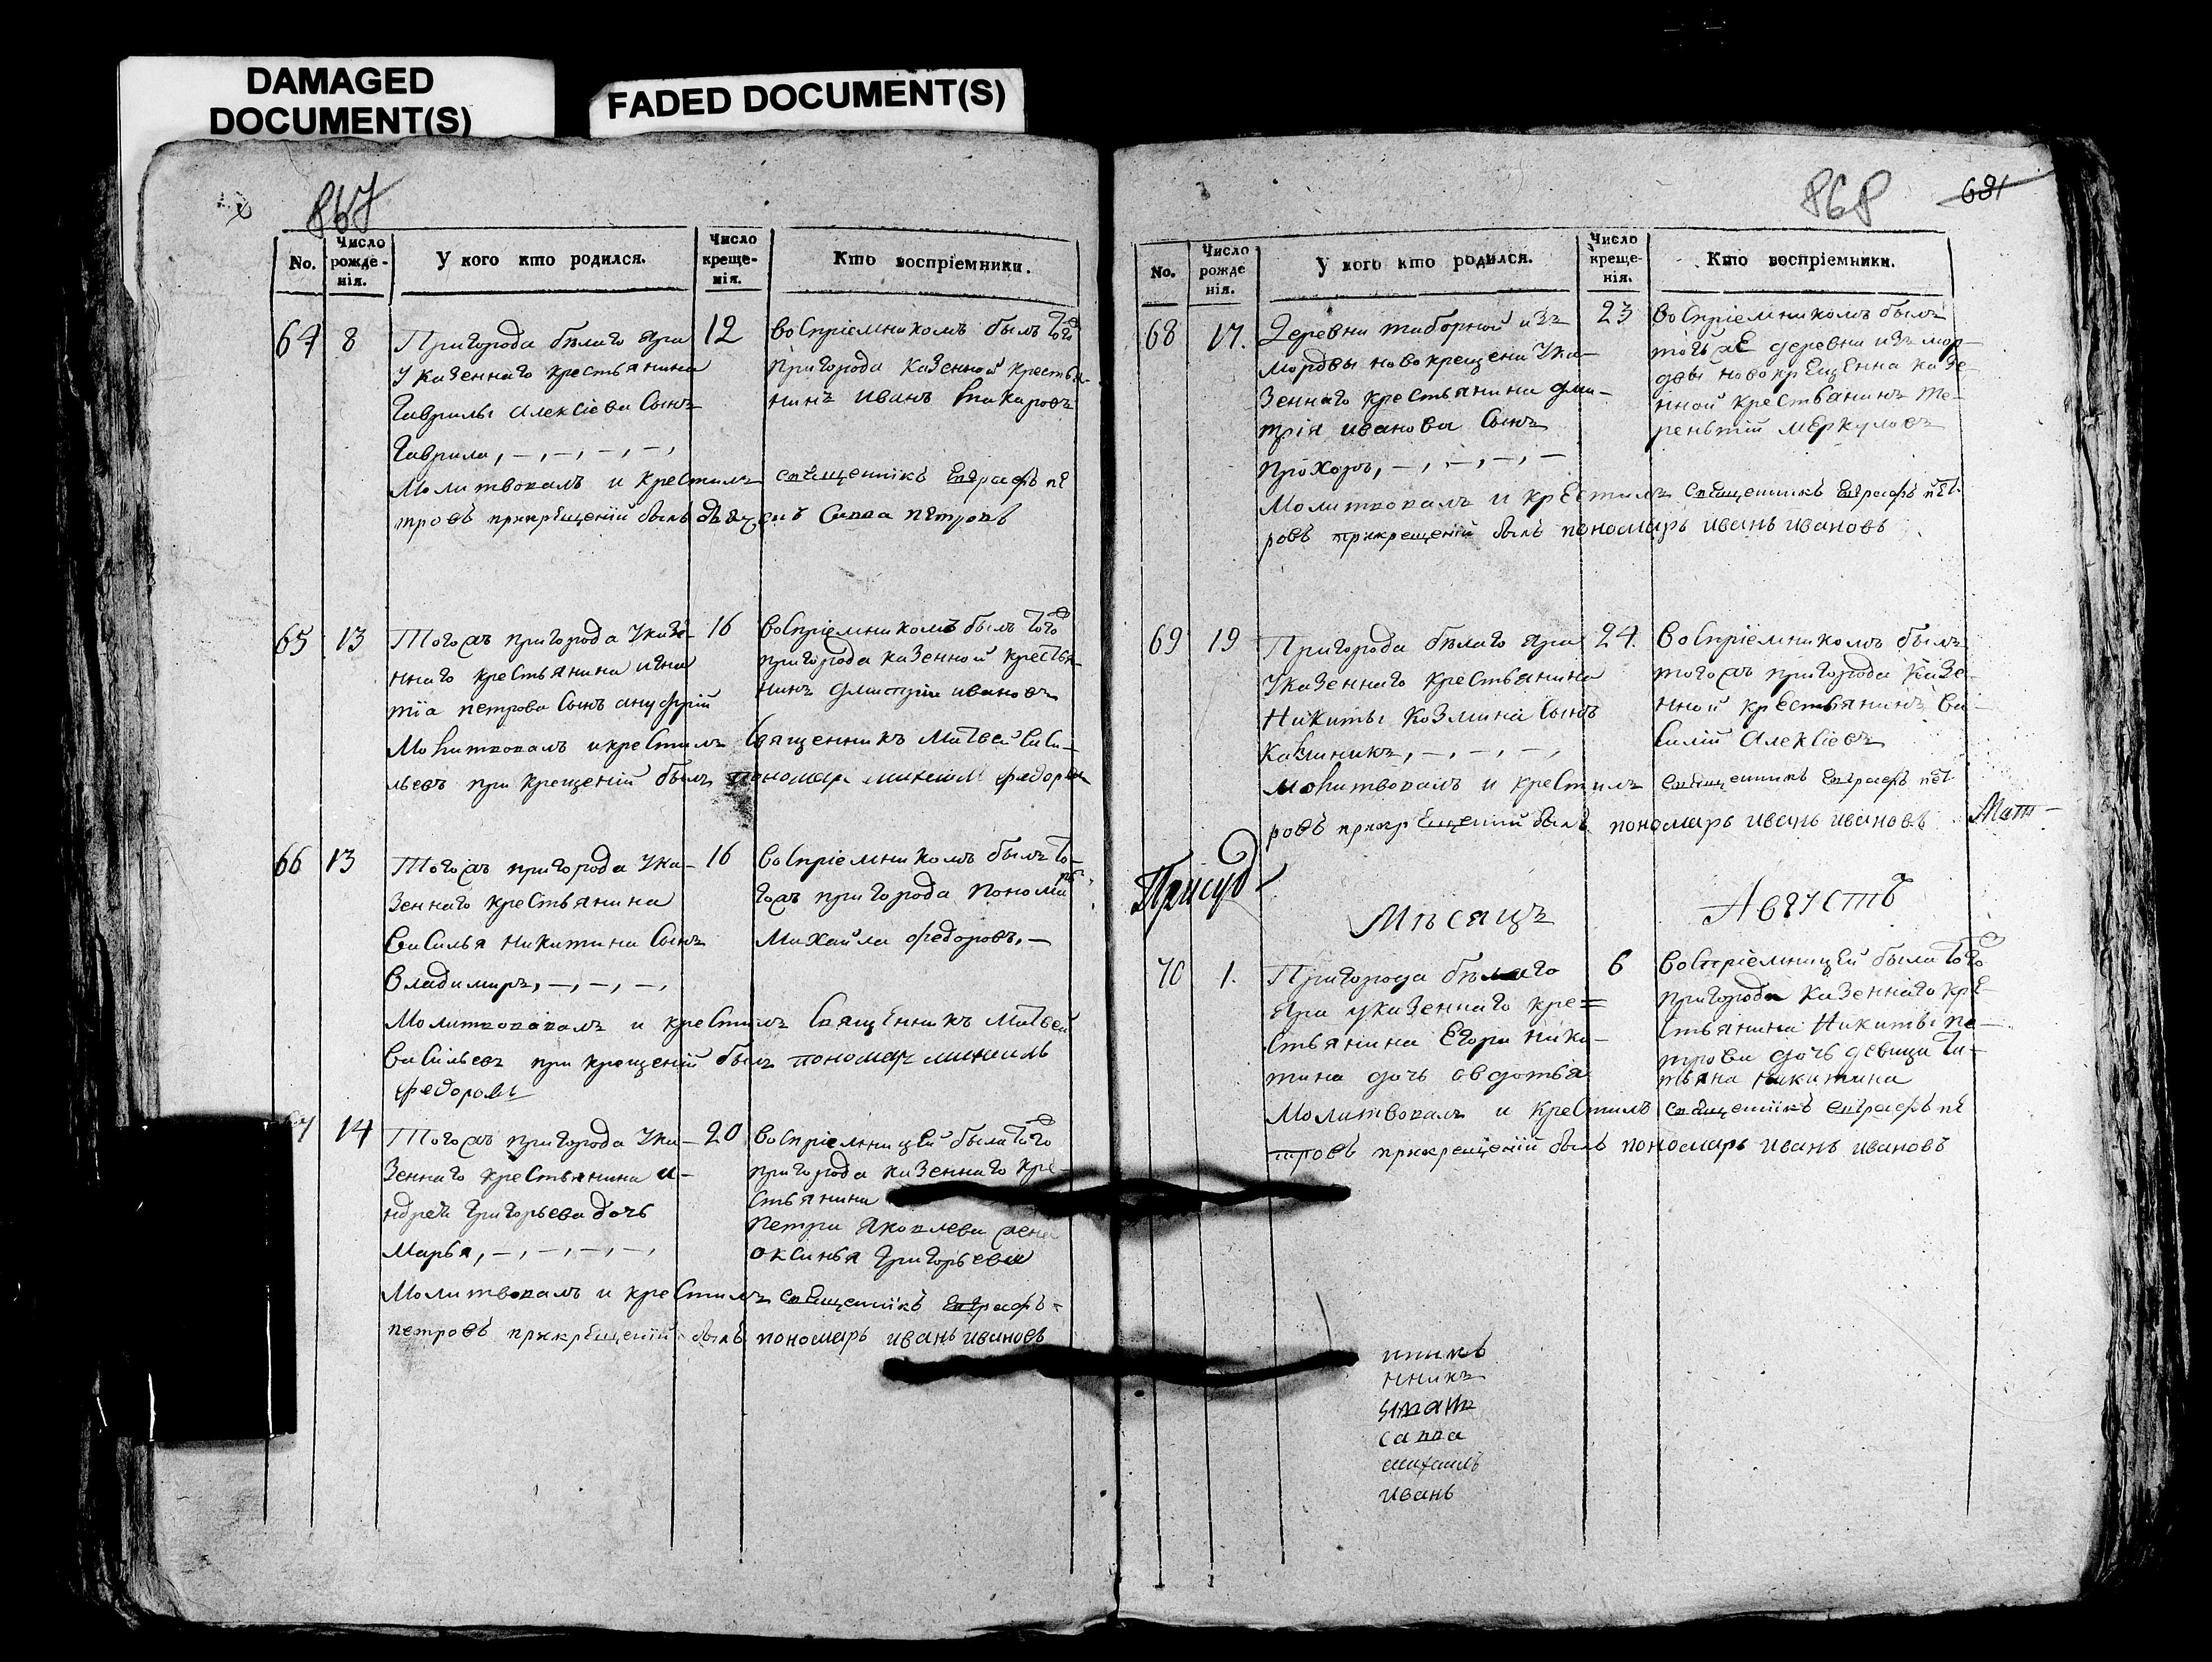 DAMAGED
DOCUMENT(S)
FADED DOCUMENT(S)
867
No.
Число рожде-нія.
У кого кто родился.
Число креще-нія.
Кто воспріемники.
64
8
Пригорода белаго Яра
Указеннаго крестьянина
Гаврилы Алексіева Сынъ
Гаврила, —, —, —, —,
12
Воспріемникомъ былъ того
пригорода казенной крестья-
нинъ Иванъ Макаровъ
Молитвовалъ и крестилъ священникъ Евграфъ пе
тровъ прикрещеніи былъ діаконъ Савва петровъ
65
13
Тогожъ пригорода Указе-
ннаго крестьянина игна
тіа петрова Сынъ ануфрій
16
Воспріемникомъ былъ того
пригорода казенной крестья-
нинъ дмитрій ивановъ
Молитвовалъ икрестилъ Священникъ Матвей Васи-
льевъ при крещеніи былъ пономарь михаил федоровъ
66
13
Тогожъ пригорода Ука-
зеннаго крестьянина
Василья никитина Сынъ
Владимиръ, —, —, —,
16
Воспріемникомъ былъ то-
гожъ пригорода пономарь
Михайла федоровъ, —
Молитвовалъ и крестилъ Священникъ Матвей
Васильевъ при крещеніи былъ пономарь михаилъ
федоровъ
14
Тогожъ пригорода Ука-
зеннаго крестьянина а-
ндрей григорьева дочь
Марья, —, —, —, —,
20
Воспріемницей была того
пригорода казеннаго кре-
стьянина
петра Яковлева жена
оксинья григорьева
Молитвовалъ и крестилъ священникъ Евграфъ-
петровъ прикрещеніи былъ пономарь иванъ ивановъ
868
681
No.
Число рожде нія.
У кого кто родился.
Число креще-нія.
Кто воспріемники.
68
17.
Деревни таборной изъ
мордвы новокрещена Ука-
зеннаго крестьянина дми-
трія иванова Сынъ
прохоръ, —, —, —, —
23
Воспріемникомъ былъ
тойже деревни изъ мор-
двы новокрещенна казе-
нной крестьянинъ те-
рентій меркуловъ
Молитвовалъ и крестилъ священникъ Евграфъ пет-
ровъ прикрещеніи былъ пономарь иванъ ивановъ
69
19
Пригорода белаго Яра
Указеннаго крестьянина
Никиты Козмина Сынъ
Каллиникъ, —, —, —,
24.
Воспріемникомъ былъ
тогожъ пригорода казе-
нной крестьянинъ Ва-
силій Алексіевъ
Молитвовалъ и крестилъ священникъ Евграфъ пет-
ровъ прикрещеніи былъ пономарь иванъ ивановъ
Мат-
Присуд-
Мѣсяцъ
Августъ
70
1.
Пригорода белаго
Яра указеннаго кре=
стьянина Егора ники-
тина дочь авдотья
6
Воспріемницей была того
пригорода казеннаго кре
стьянина Никиты пе-
трова дочь девица Та-
тьяна никитина
Молитвовалъ и крестилъ священникъ евграфъ пе
тровъ прикрещеніи былъ пономарь иванъ ивановъ
нникъ
нникъ
савва
михаилъ
иванъ